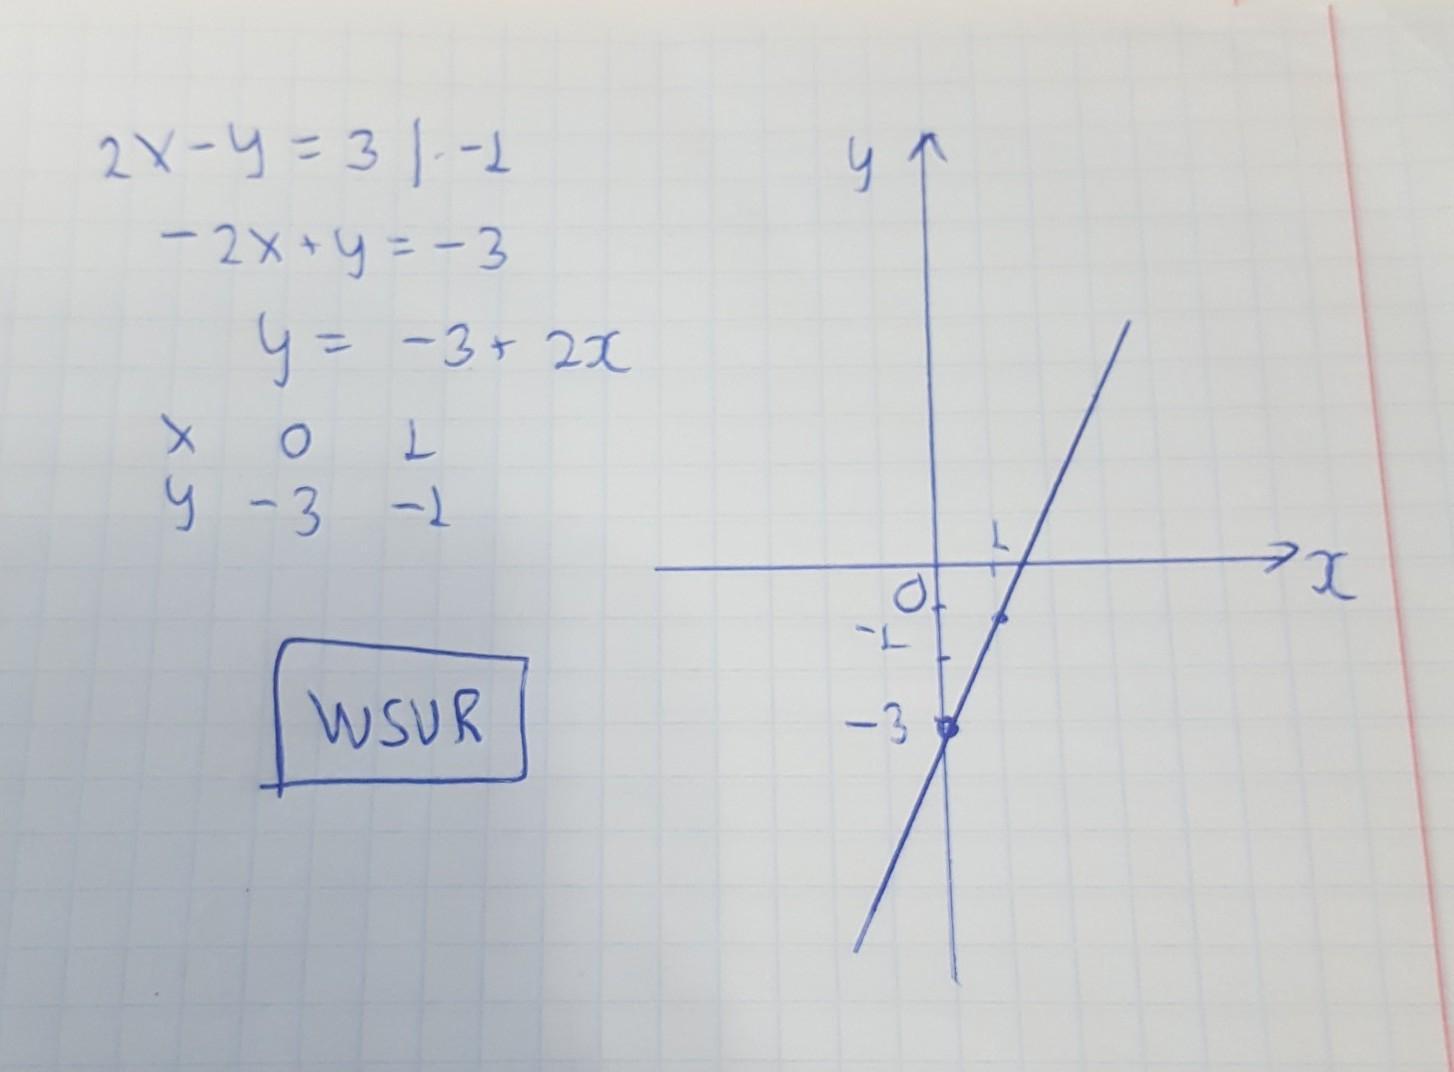 2x-y=3 |·-1
-2x+y=-3
y = -3+ 2x
x 0 1
y -3 -1
WSVR
y
1
x
0
-1
-3